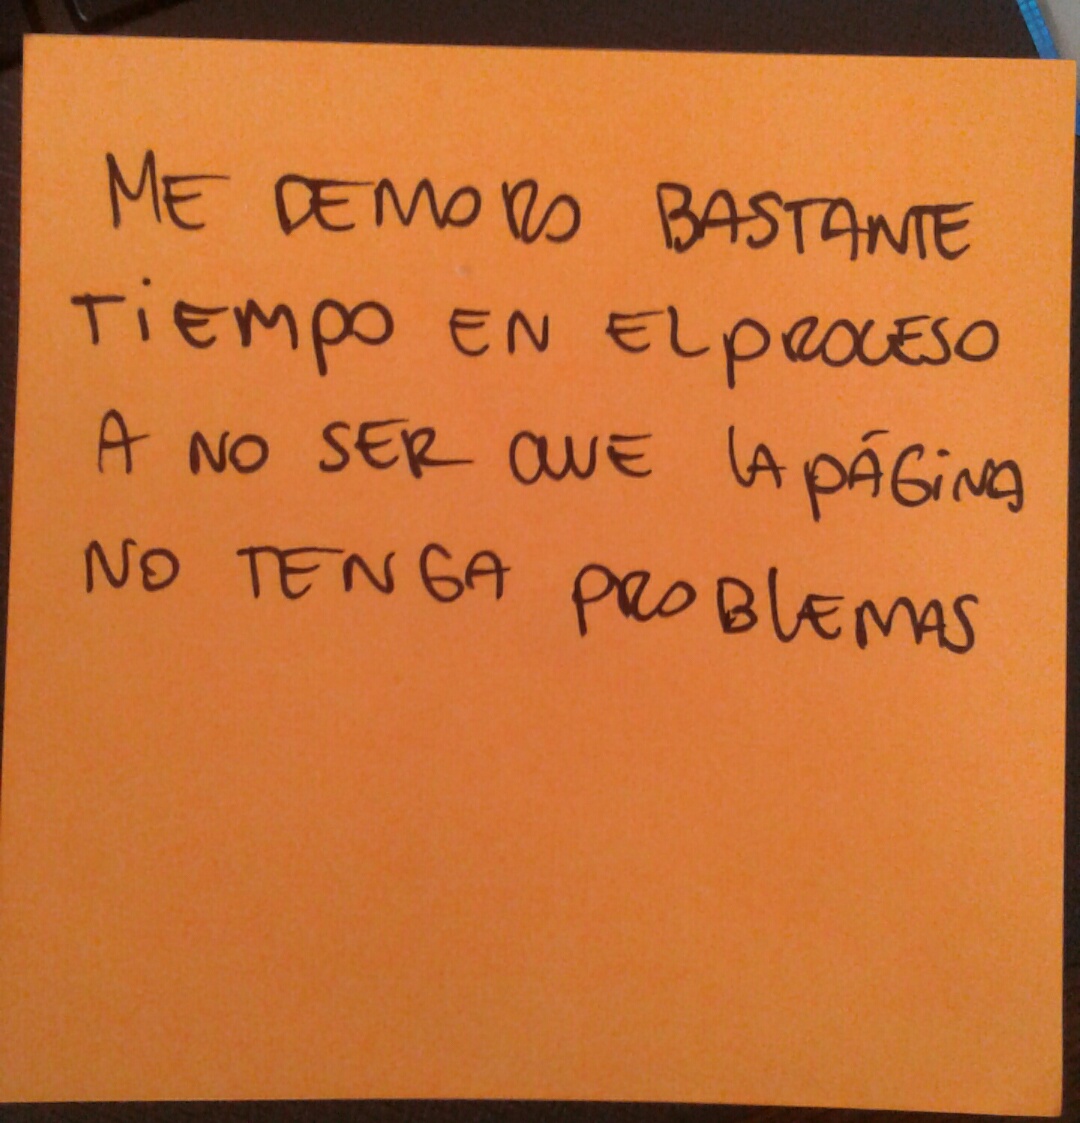 ME DEMORO BASTANTE
TiEMPO EN EL PROCESO
A NO SER QUE LA PÁGiNA
NO TENGA PROBlEMAS